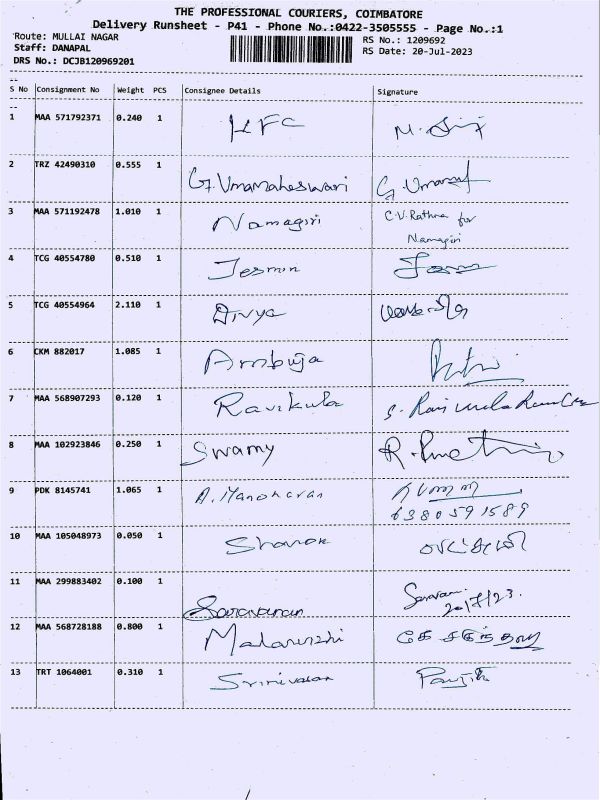 THE PROFESSIONAL COURIERS, COIMBATORE
Delivery Runsheet - P41 - Phone No.:0422-3505555 - Page No.:1
Route: MULLAI NAGAR RS No.: 1209692
Staff: DANAPAL RS Date: 20-Jul-2023
DRS No.: DCJB120969201
S No Consignment No Weight PCS Consignee Details Signature
1 MAA 571792371 0.240 1 KFC
2 TRZ 42490310 0.555 1 G. Umamaheswari G. Umam
3 MAA 571192478 1.010 1 Namagiri C.V. Rathna for
Namagiri
4 TCG 40554780 0.510 1 Jesmin
5 TCG 40554964 2.110 1 Divya
6 CKM 882017 1.085 1 Ambuja
7 MAA 568907293 0.120 1 Ravikula
8 MAA 102923846 0.250 1 Swamy
9 PDK 8145741 1.065 1 A. Manoharan
6380591589
10 MAA 105048973 0.050 1 Sharon
11 MAA 299883402 0.100 1 Saravanan Saravan
20/7/23.
12 MAA 568728188 0.800 1 Malarvizhi
13 TRT 1064001 0.310 1 Srinivasan